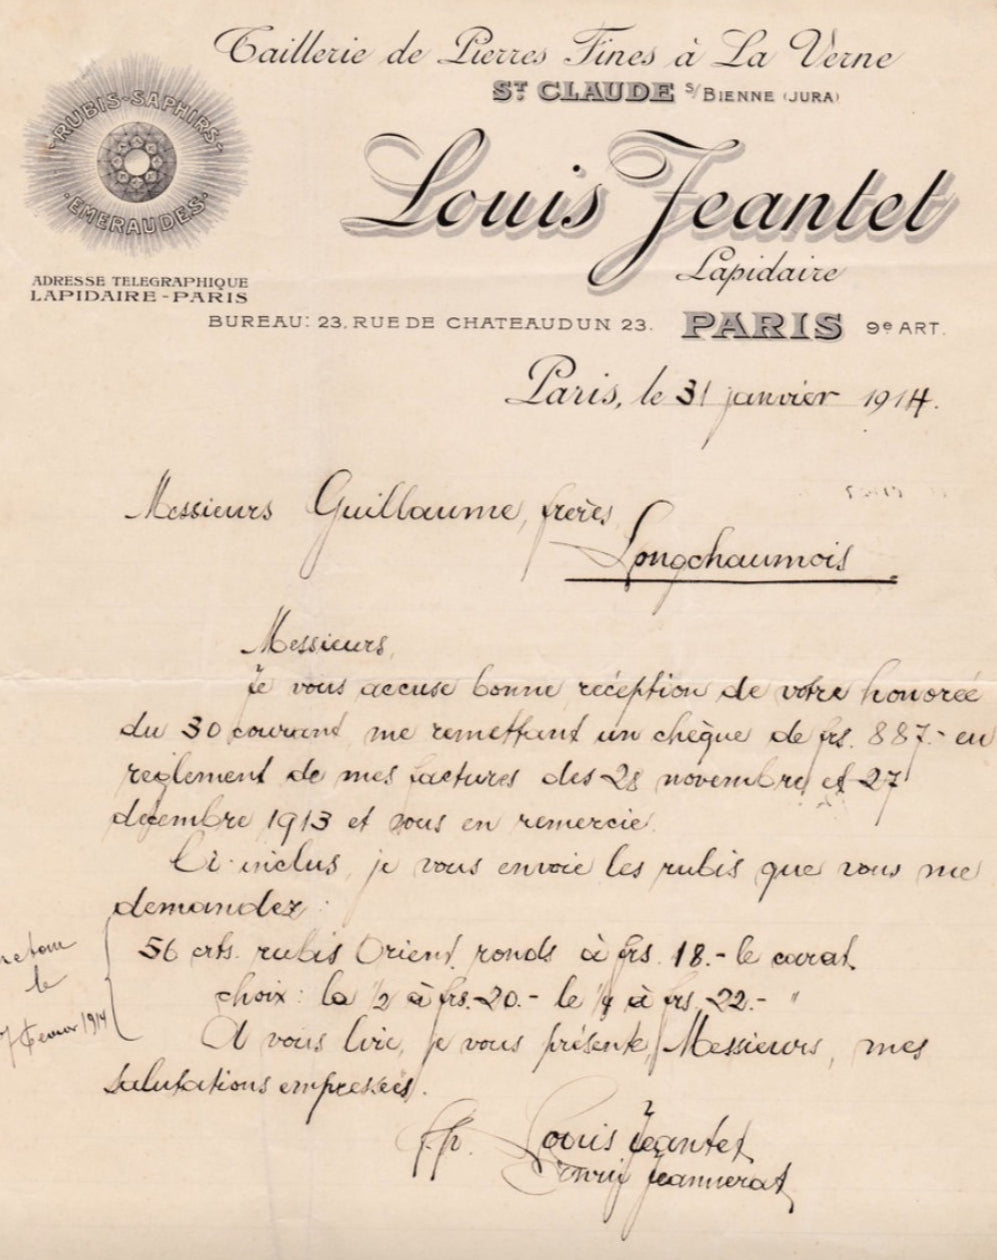 Taillerie de Pierres Fines à La Verne
ST CLAUDE S/BIENNE (JURA)
RUBIS-SAPHIRS-
·EMERAUDES·
Louis Jeantet
Lapidaire
ADRESSE TELEGRAPHIQUE
LAPIDAIRE-PARIS
BUREAU: 23, RUE DE CHATEAUDUN 23. PARIS 9e ART.
Paris, le 31 janvier 1914.
Messieurs Guillaume, frères
Longchaumois
Messieurs,
Je vous accuse bonne réception de votre honorée
du 30 courant, me remettant un chèque de frs. 887.- en
règlement de mes factures des 28 novembre et 27
décembre 1913 et vous en remercie.
Ci-inclus, je vous envoie les rubis que vous me
demandez:
56 crts. rubis Orient ronds à frs. 18.- le carat
choix: la 1/2 à frs. 20.- le 1/4 à frs. 22.- "
retour
le
7 février 1914
A vous lire, je vous présente, Messieurs, mes
salutations empressées.
p.p. Louis Jeantet
Henry Jeannerat